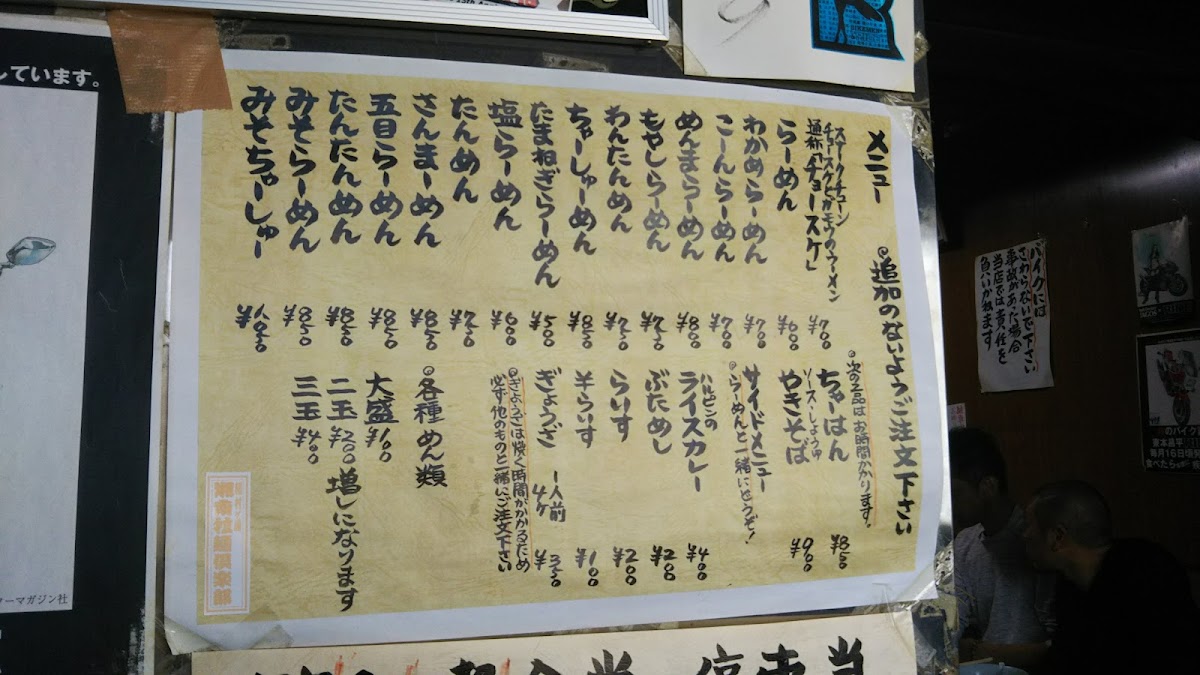 メニュー
◎追加のないようご注文下さい
スモークチューン
チョースケとカモウのラーメン
通称「チョースケ」
¥700
らーめん
¥600
わかめらーめん
¥700
こーんらーめん
¥700
めんまらーめん
¥800
もやしらーめん
¥750
わんたんめん
¥750
ちゃーしゅーめん
¥850
たまねぎらーめん
¥500
塩らーめん
¥600
たんめん
¥750
さんまーめん
¥850
五目らーめん
¥850
たんたんめん
¥850
みそらーめん
¥850
みそちゃーしゅー
¥1050
◎次の2品はお時間かかります。
ちゃーはん
¥850
ソース・しょうゆ
やきそば
¥900
サイドメニュー
◎らーめんと一緒にどうぞ!
ハルピンの
ライスカレー
¥400
ぶためし
¥200
らいす
¥200
半らいす
¥100
ぎょうざ
1人前
4ケ
¥350
◎ぎょうざは焼く時間がかかるため
必ず他のものと一緒にご注文下さい
◎各種めん類
大盛¥100
二玉¥200増しになります
三玉¥400
バイクには
さわらないで下さい
事故があった場合
当店では責任を
負いかねます
しています。
ターマガジン社
のバイク
東本昌平
毎月16日頃発